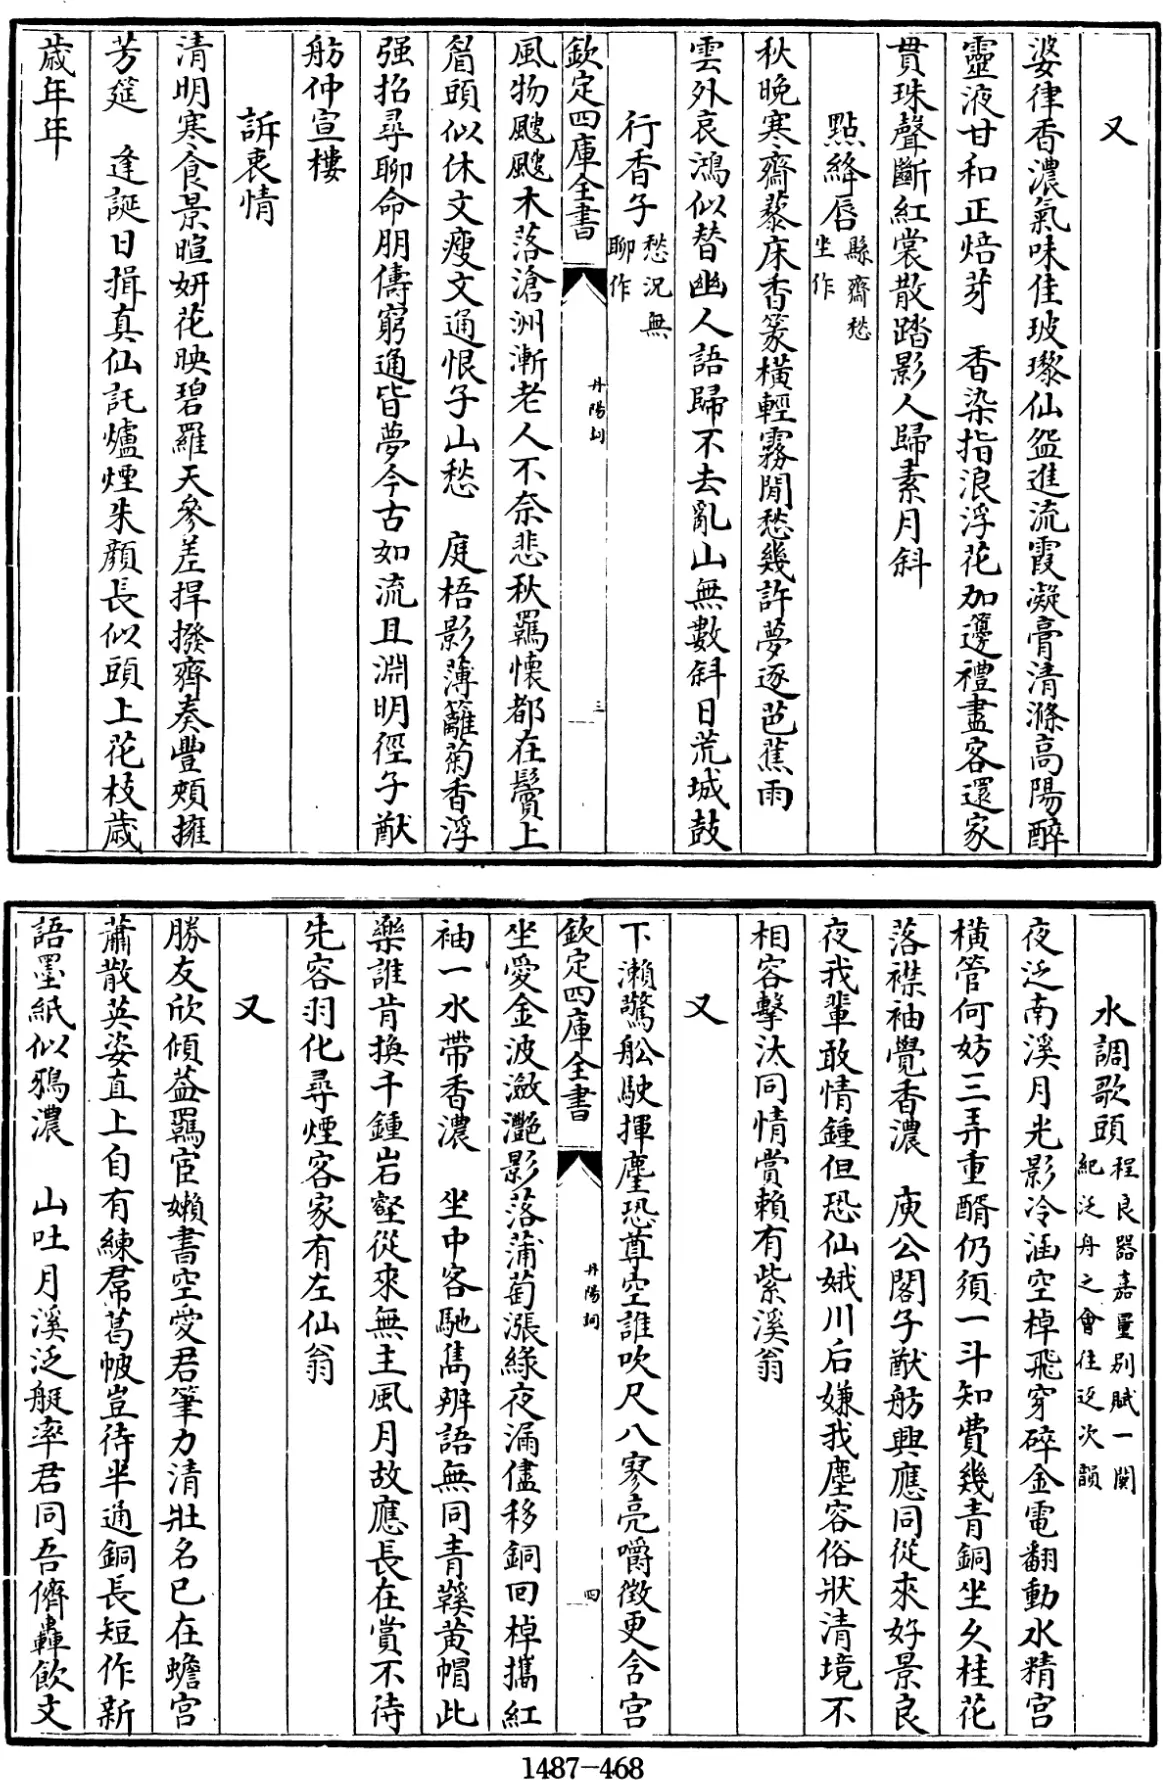 又
婆律香濃氣味佳玻瓈仙盌進流霞凝膏清滌高陽醉
靈液甘和正焙芽　香染指浪浮花加籩禮盡客還家
貫珠聲斷紅裳散踏影人歸素月斜
點絳唇縣齋愁坐作
秋晚寒齋藜床香篆橫輕霧閒愁幾許夢逐芭蕉雨
雲外哀鴻似替幽人語歸不去亂山無數斜日荒城鼓
行香子愁況無聊作
欽定四庫全書
丹陽詞
三
風物颼颼木落滄洲漸老人不奈悲秋羈懷都在鬢上
眉頭似休文瘦文通恨子山愁　庭梧影薄籬菊香浮
强招尋聊命朋儔窮通皆夢今古如流且淵明徑子猷
舫仲宣樓
訴衷情
清明寒食景暄妍花映碧羅天參差捍撥齊奏豐頰擁
芳筵　逢誕日揖真仙託爐煙朱顏長似頭上花枝歳
歳年年
水調歌頭程良器嘉量别賦一闋紀泛舟之會往返次韻
夜泛南溪月光影冷涵空棹飛穿碎金電翻動水精宮
橫管何妨三弄重醑仍須一斗知費幾青銅坐久桂花
落襟袖覺香濃　庾公閣子猷舫興應同從來好景良
夜我輩敢情鍾但恐仙娥川后嫌我塵容俗狀清境不
相容擊汰同情賞賴有紫溪翁
又
下瀨驚舩駛揮麈恐尊空誰吹尺八寥亮嚼徵更含宮
欽定四庫全書
丹陽詞
四
坐愛金波瀲灔影落蒲萄漲綠夜漏儘移銅回棹攜紅
袖一水帶香濃　坐中客馳雋辨語無同青鞵黄帽此
樂誰肯換千鍾岩壑從來無主風月故應長在賞不待
先容羽化尋煙客家有左仙翁
又
勝友欣傾葢羈宦嬾書空愛君筆力清壯名已在蟾宮
蕭散英姿直上自有練帬葛帔豈待半通銅長短作新
語墨紙似鴉濃　山吐月溪泛艇率君同吾儕轟飲文
1487-468